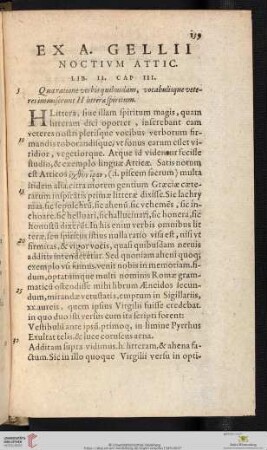 159
EX A. GELLII
NOCTIVM ATTIC.
LIB. II. CAP III.
Qua ratione verbis quibusdam, vocabulisque vete-
res immiserint H litteræ spiritum.
H Littera, siue illam spiritum magis, quam
litteram dici oportet, inserebant eam
veteres nostri plerisque vocibus verborum fir-
mandis roborandisque, vt sonus earum esset vi-
ridior, vegetiorque. Atque id videntur fecisse
studio, & exemplo linguæ Atticæ. Satis notum
est Atticos (i. piscem sacrum) multa
itidem alia citra morem gentium Græciæ cæte-
rarum inspiratis primæ litteræ dixisse. Sic lachry
mas, sic sepulchra, sic ahenum, sic vehemens, sic in-
choare, sic helluari, sic hallucinari, sic honera, sic
honustum dixerunt. In his enim verbis omnibus lit
teræ, seu spiritus istius nulla ratio visa est, nisi vt
firmitas, & vigor vocis, quasi quibusdam neruis
additis intenderetur. Sed quoniam aheni quoque
exemplo vsi sumus, venit nobis in memoriam, fi-
dum, optatumque multi nominis Romæ gramma
ticum ostendisse mihi librum Æneidos secun-
dum, mirandæ vetustatis, emptum in Sigillariis,
xx. aureis. quem ipsius Virgilii fuisse credebat.
in quo duo isti versus cum ita scripti forent:
Vestibulum ante ipsum, primoq. in limine Pyrrhus
Exultat telis, & luce coruscus aena.
Additam supra vidimus h litteram, & ahena
factum. Sic in illo quoque Virgilii versu in opti-